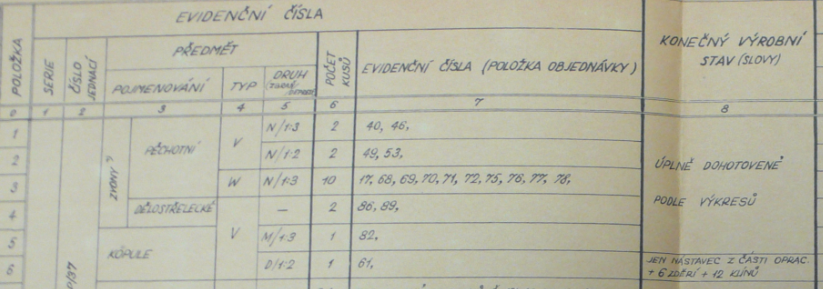 EVIDENČNÍ ČÍSLA
POLOŽKA
SERIE
ČÍSLO JEDNACÍ
PŘEDMĚT
POČET KUSŮ
EVIDENČNÍ ČÍSLA (POLOŽKA OBJEDNÁVKY)
KONEČNÝ VÝROBNÍ
STAV (SLOVY)
POJMENOVÁNÍ
TYP
DRUH
0 1 2 3 4 5 6 7 8
ZVONY
PĚCHOTNÍ
V
1 N/1:3 2 40, 46,
2 N/1:2 2 49, 53,
3 W N/1:3 10 17, 68, 69, 70, 71, 72, 75, 76, 77, 78,
ÚPLNĚ DOHOTOVENÉ
PODLE VÝKRESŮ
4 DĚLOSTŘELECKÉ — 2 86, 89,
KOPULE
V
5 M/1:3 1 82,
6 D/1:2 1 61,
JEN NÁSTAVEC Z ČÁSTI OPRAC.
+ 6 ZDĚŘÍ + 12 KLÍNŮ